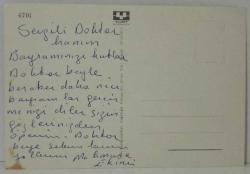 4701
Sevgili Doktor
hanım
Bayramınızı kutlar
Doktor beyle
beraber daha nice
bayramlar geçir
menizi diler sizin
gözlerinizden
öperim. Doktor
beye selamlarımı
yollarım